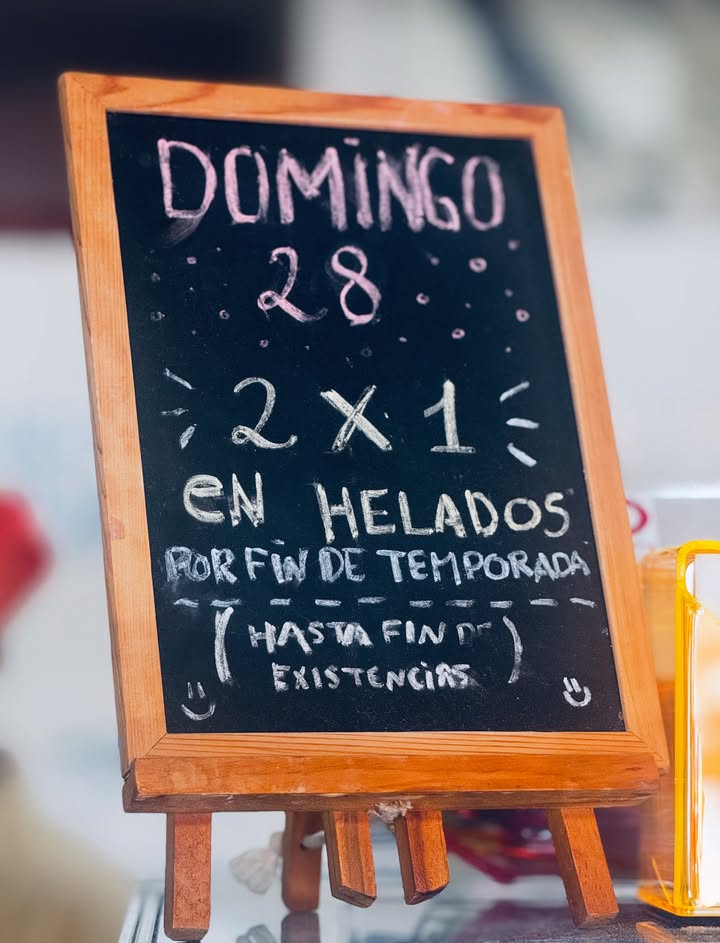 DOMINGO
28
2 X 1
EN HELADOS
POR FIN DE TEMPORADA
(HASTA FIN DE
EXISTENCIAS)